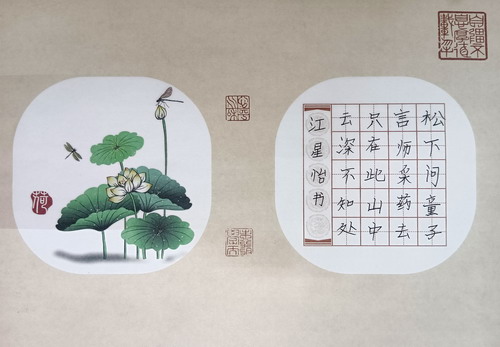 松下问童子
言师采药去
只在此山中
云深不知处
江星怡书
荷